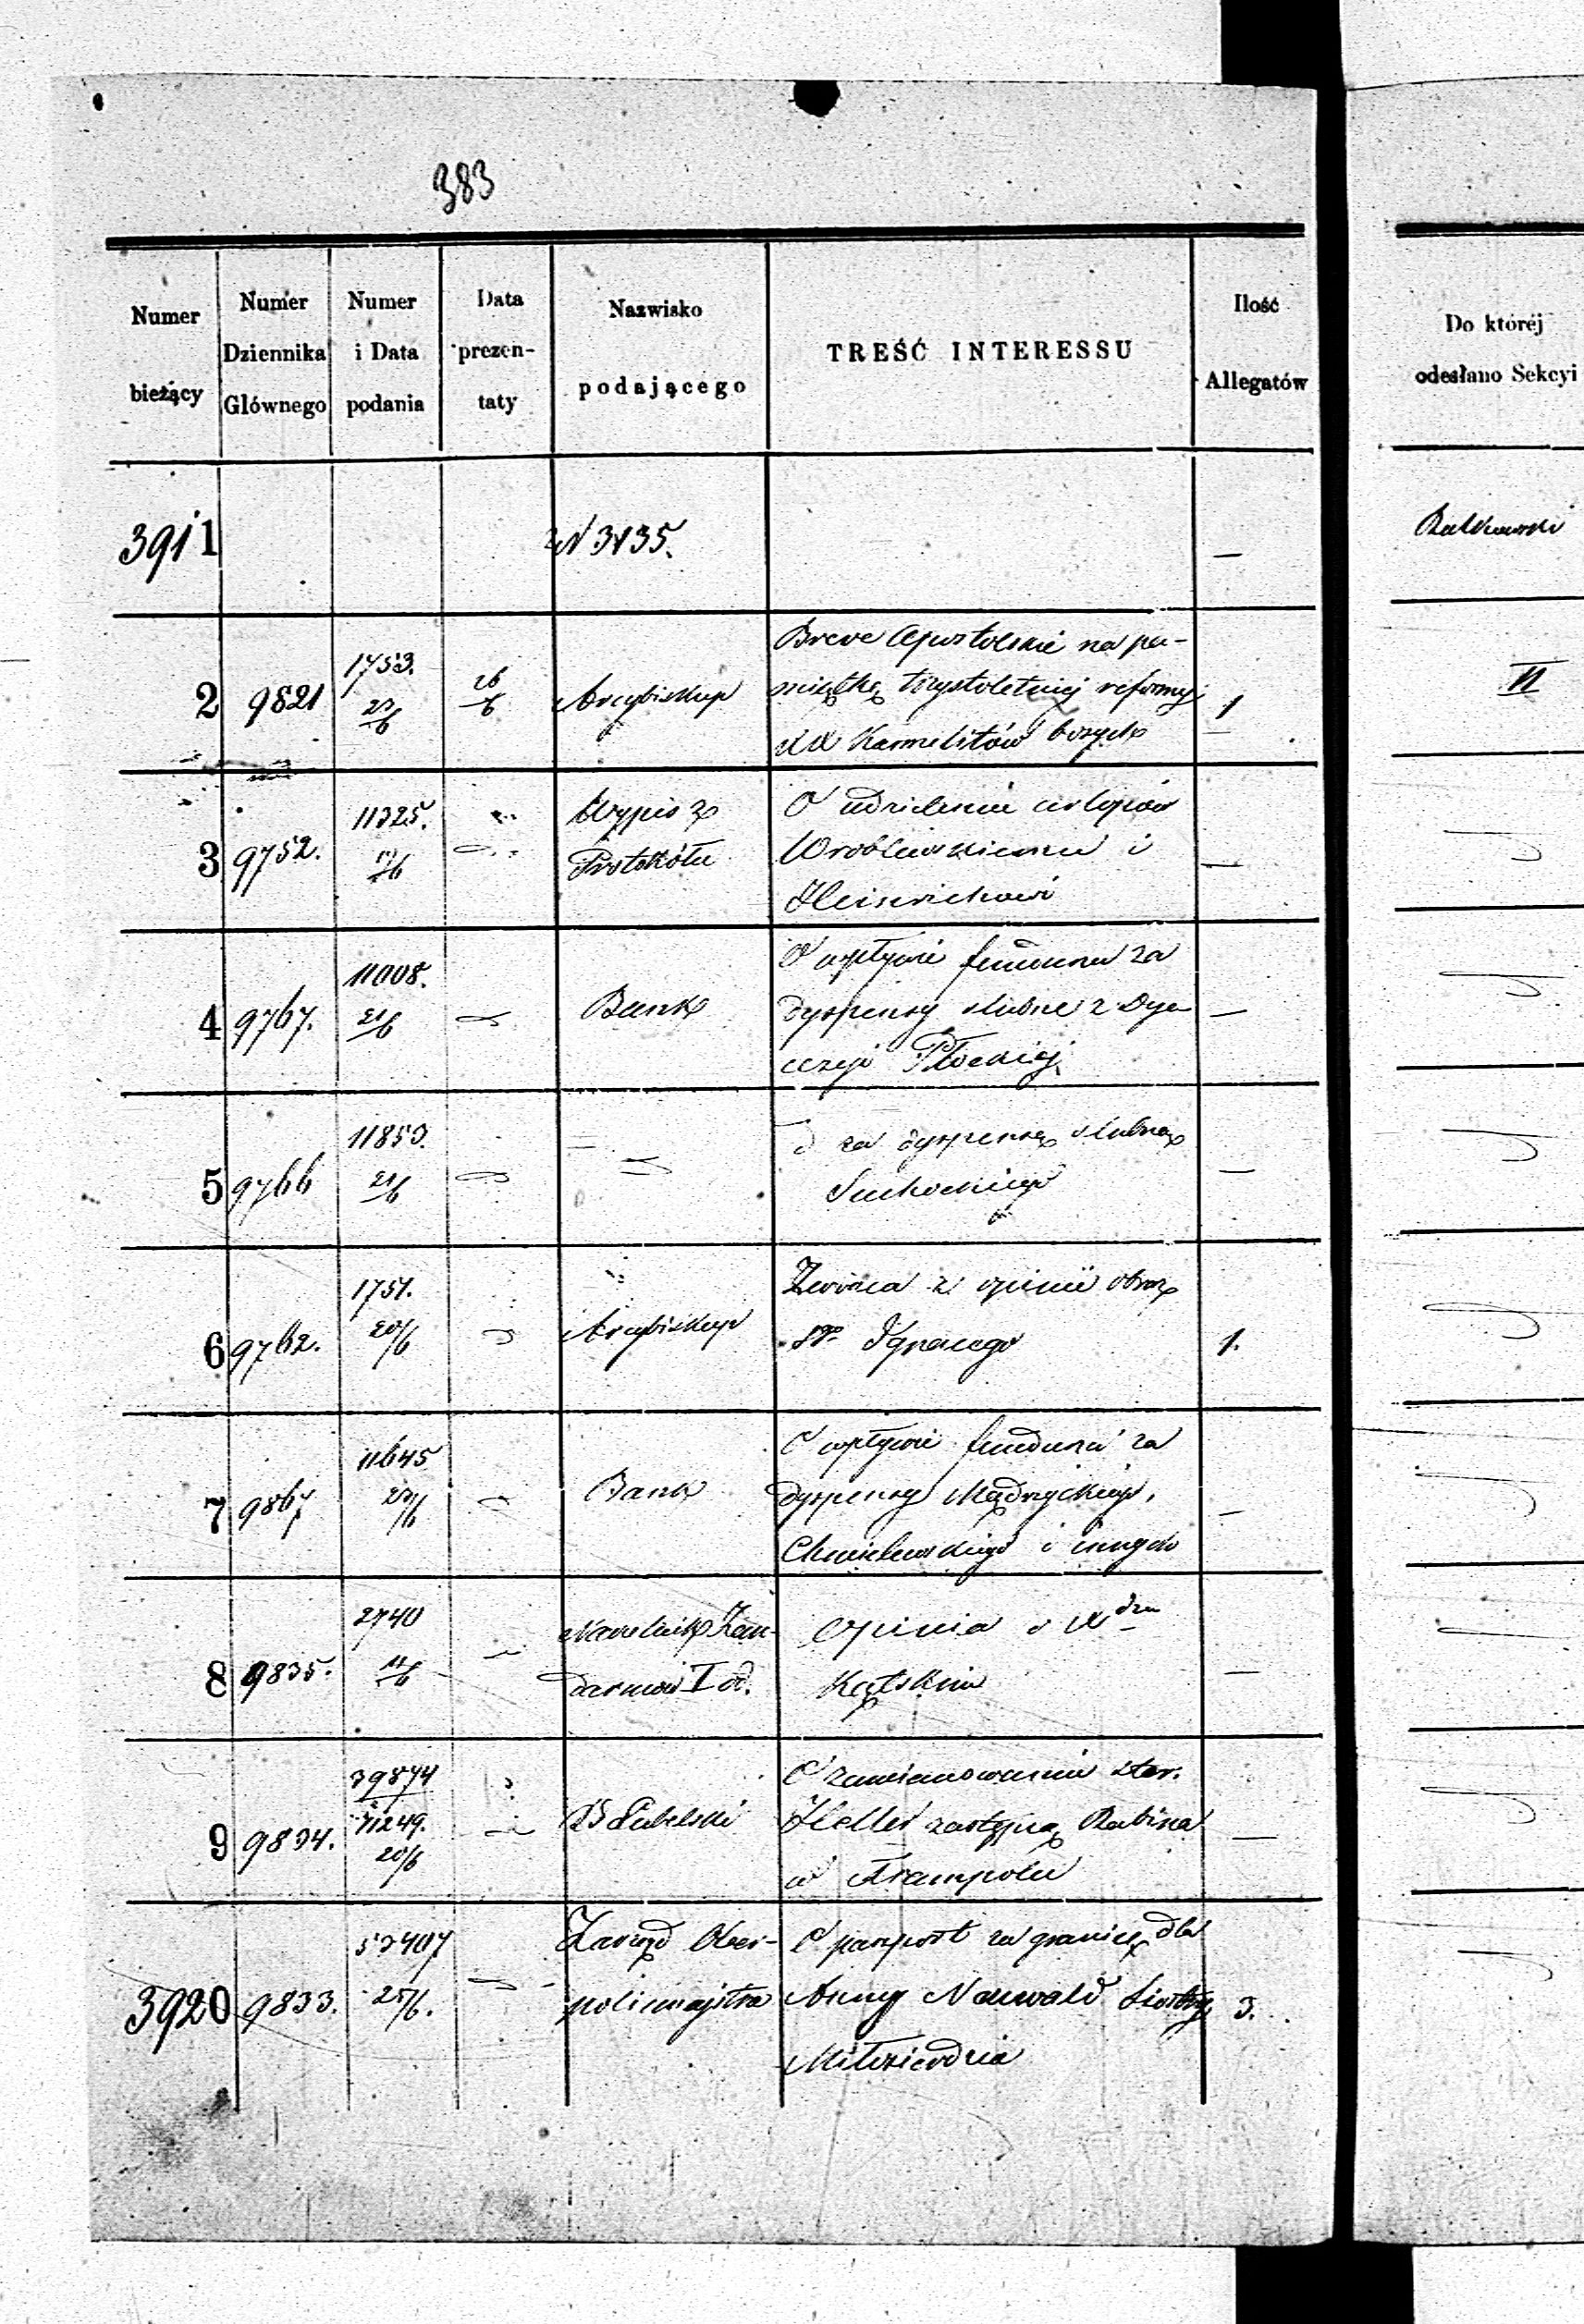 383
Numer bieżący
Numer Dziennika Głównego
Numer i Data podania
Data prezen- taty
Nazwisko podającego
TREŚĆ INTERESSU
Ilość Allegatów
Do któréj odesłano Sekcyi
3911
—
2 9821
1753. 23/6
26/6
Arcybiskup
Breve Apostolskie na pa-
miątkę trzystoletniéj reformy
XX Karmelitów bosych
1
II
3 9752.
11325.
Wypis z
Protokółu
O udzieleniu urlopów
Wroblewskiemu i
—
4 9767.
11008. 21/6
Bank
O wpływie funduszu za
dyspensy ślubne z Dye-
cezyi Płockiej
—
5 9766
11853. 21/6
za dyspensę ślubną
Suchockiego
—
6 9762.
1751. 20/6
Arcybiskup
Zwraca z opinii obraz
Sgo Ignacego
1.
7 9867
11645 23/6
Bank
O wpływie funduszu za
dyspensy Mądrzyckiego,
Chmielewskiego i innych
—
8 9835.
2740
Naczelnik Żan-
darmów I od.
Opinia o Xdzu
Kątskim
—
9 9834.
39874
71249.
20/6
Lubelski
O zamianowaniu star.
Heller zastępcą Rabina
w Frampolu
—
3920 9833.
53407
25/6.
Zarząd Ober-
policmajstra
O paszport za granicę dla
Anny Neuwald Siostry
Miłosierdzia
3.